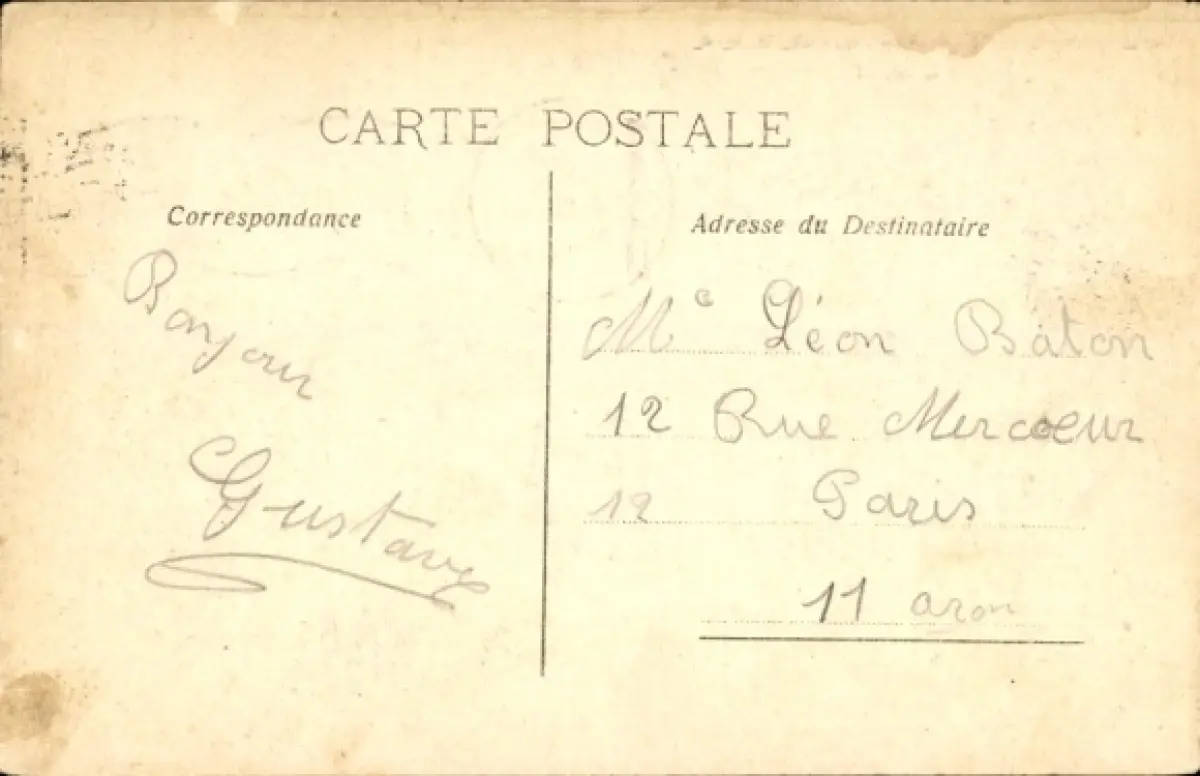 CARTE POSTALE
Correspondance
Bonjour
Gustave
Adresse du Destinataire
Mc Léon Baton
12 Rue Mercoeur
12 Paris
11 aron